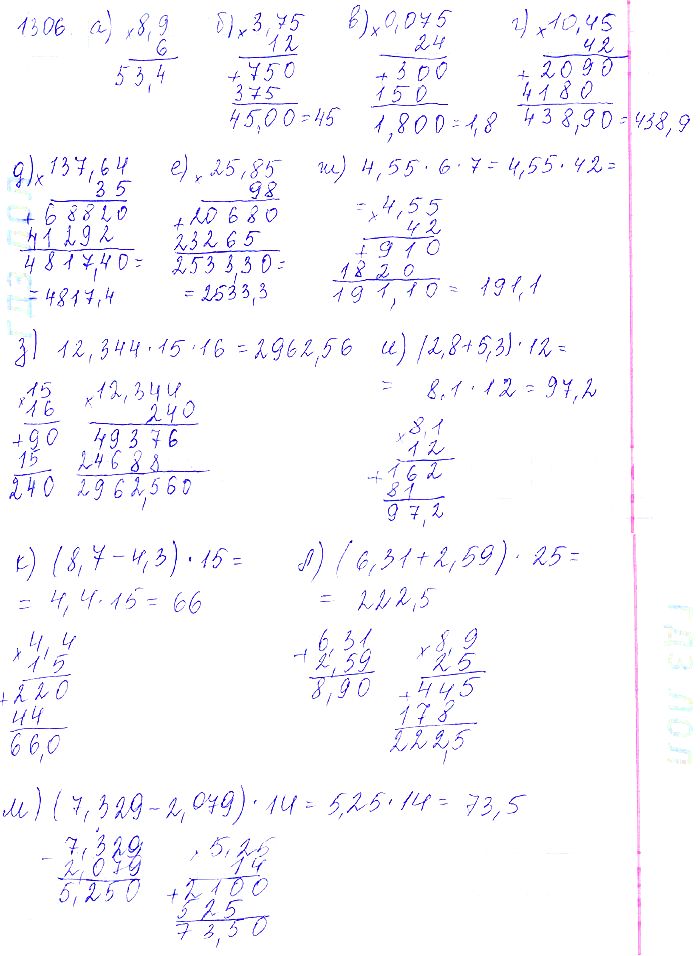 1306 а) × 8,9 б) × 3,75 в) × 0,075 г) × 10,45
6 12 24 42
53,4 + 750 + 300 + 2090
375 150 4180
45,00 = 45 1,800 = 1,8 438,90 = 438,9
д) × 137,64 е) × 25,85 ж) 4,55 · 6 · 7 = 4,55 · 42 =
35 98 = × 4,55
+ 68820 + 20680 42
41292 23265 + 910
4817,40 = 2533,30 = 1820
= 4817,4 = 2533,3 191,10 = 191,1
з) 12,344 · 15 · 16 = 2962,56 и) (2,8 + 5,3) · 12 =
= 8,1 · 12 = 97,2
× 15 × 12,344 × 8,1
16 240 12
+ 90 49376 + 162
15 24688 81
240 2962,560 97,2
к) (8,7 - 4,3) · 15 = л) (6,31 + 2,59) · 25 =
= 4,4 · 15 = 66 = 222,5
× 4,4 + 6,31 × 8,9
15 2,59 25
+ 220 8,90 + 445
44 178
66,0 222,5
м) (7,329 - 2,079) · 14 = 5,25 · 14 = 73,5
- 7,329 × 5,25
2,079 14
5,250 + 2100
525
73,50